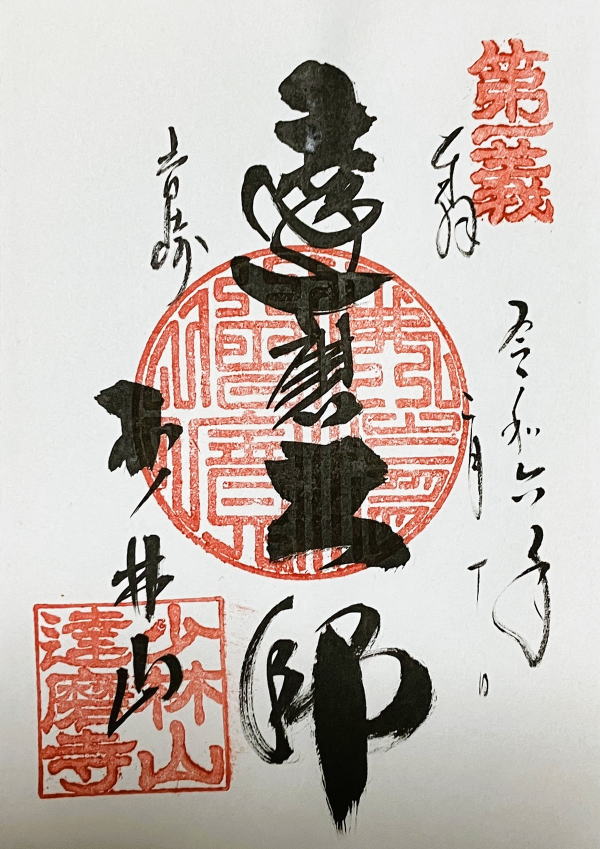 第一義
奉拝
令和六年
達磨大師
高崎
少林山
少林山
達磨寺